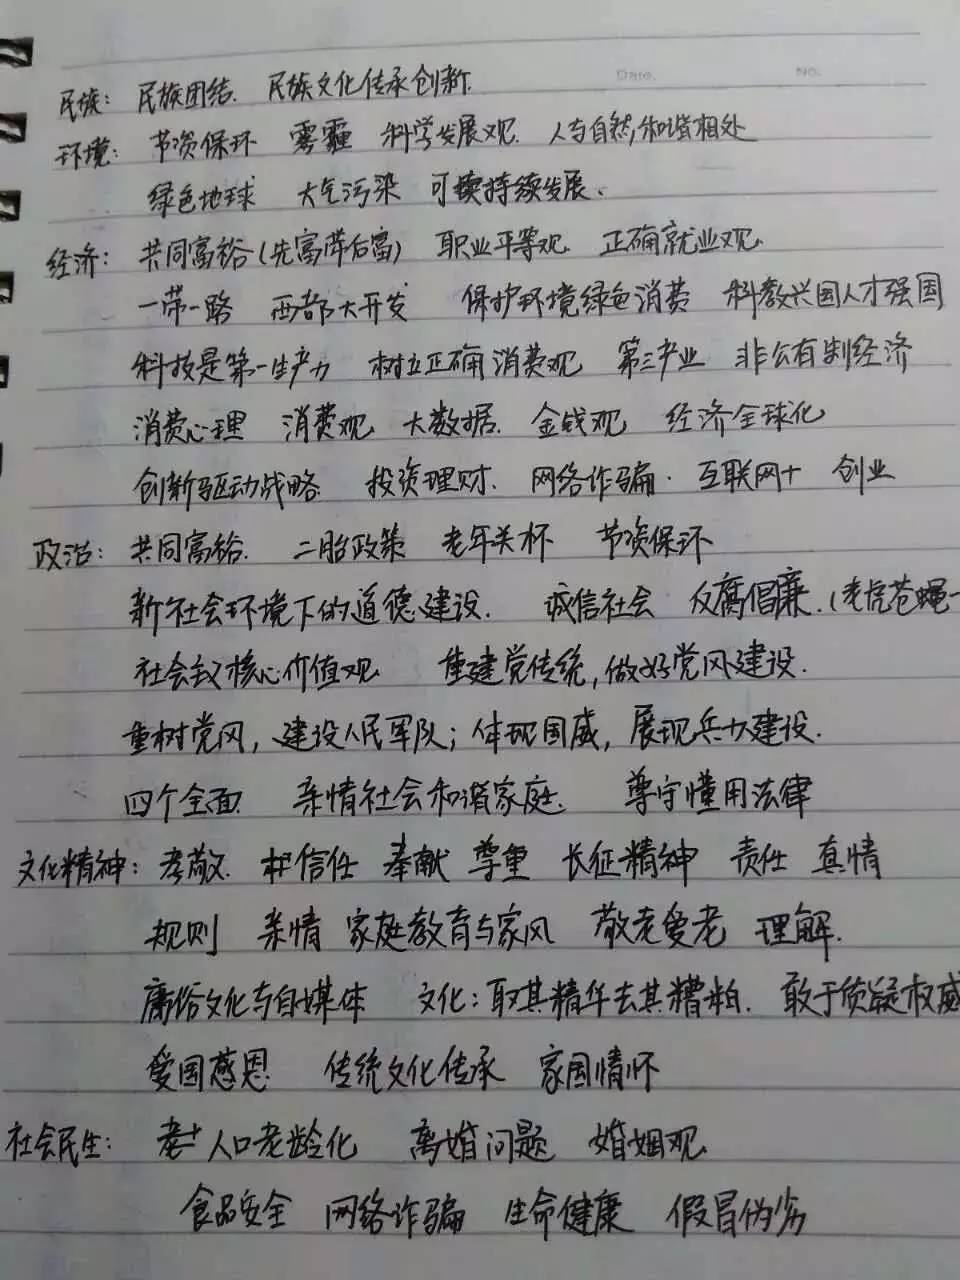 Date. No.
民族: 民族团结. 民族文化传承创新.
环境: 节资保环 雾霾 科学发展观. 人与自然和谐相处
绿色地球 大气污染 可持续发展.
经济: 共同富裕(先富带后富) 职业平等观 正确就业观
一带一路 西部大开发 保护环境绿色消费 科教兴国人才强国
科技是第一生产力 树立正确消费观 第三产业 非公有制经济
消费心理 消费观 大数据. 金钱观 经济全球化
创新驱动战略 投资理财. 网络诈骗. 互联网+ 创业
政治: 共同富裕. 二胎政策 老年关怀 节资保环
新社会环境下的道德建设. 诚信社会 反腐倡廉.(老虎苍蝇一
社会主义核心价值观 重建党传统,做好党风建设.
重树党风,建设人民军队;体现国威,展现兵力建设.
四个全面 亲情社会和谐家庭. 尊守懂用法律
文化精神: 孝敬. 信任 奉献 尊重 长征精神 责任 真情
规则 亲情 家庭教育与家风 敬老爱老 理解.
庸俗文化与自媒体 文化:取其精华去其糟粕. 敢于质疑权威
爱国感恩 传统文化传承 家国情怀
社会民生: 人口老龄化 离婚问题 婚姻观
食品安全 网络诈骗 生命健康 假冒伪劣